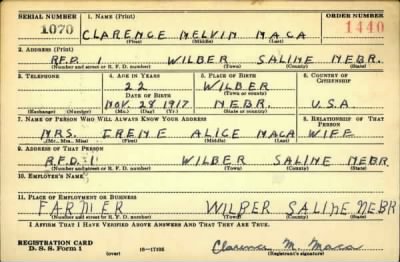 SERIAL NUMBER 1. NAME (Print) ORDER NUMBER
1070 CLARENCE MELVIN MACA 1440
(First) (Middle) (Last)
2. ADDRESS (Print)
R.F.D. 1 WILBER SALINE NEBR.
(Number and street or R. F. D. number) (Town) (County) (State)
3. TELEPHONE 4. AGE IN YEARS 5. PLACE OF BIRTH 6. COUNTRY OF CITIZENSHIP
22 WILBER
DATE OF BIRTH (Town or county)
NOV. 28 1917 NEBR. U.S.A.
(Exchange) (Number) (Mo.) (Day) (Yr.) (State or country)
7. NAME OF PERSON WHO WILL ALWAYS KNOW YOUR ADDRESS 8. RELATIONSHIP OF THAT PERSON
MRS. IRENE ALICE MACA WIFE
(Mr., Mrs., Miss) (First) (Middle) (Last)
9. ADDRESS OF THAT PERSON
R.F.D. 1 WILBER SALINE NEBR.
(Number and street or R. F. D. number) (Town) (County) (State)
10. EMPLOYER'S NAME
11. PLACE OF EMPLOYMENT OR BUSINESS
FARMER WILBER SALINE NEBR
(Number and street or R. F. D. number) (Town) (County) (State)
I AFFIRM THAT I HAVE VERIFIED ABOVE ANSWERS AND THAT THEY ARE TRUE.
REGISTRATION CARD
D. S. S. Form 1 (over) 16—17105 Clarence M. Maca
(Registrant's signature)